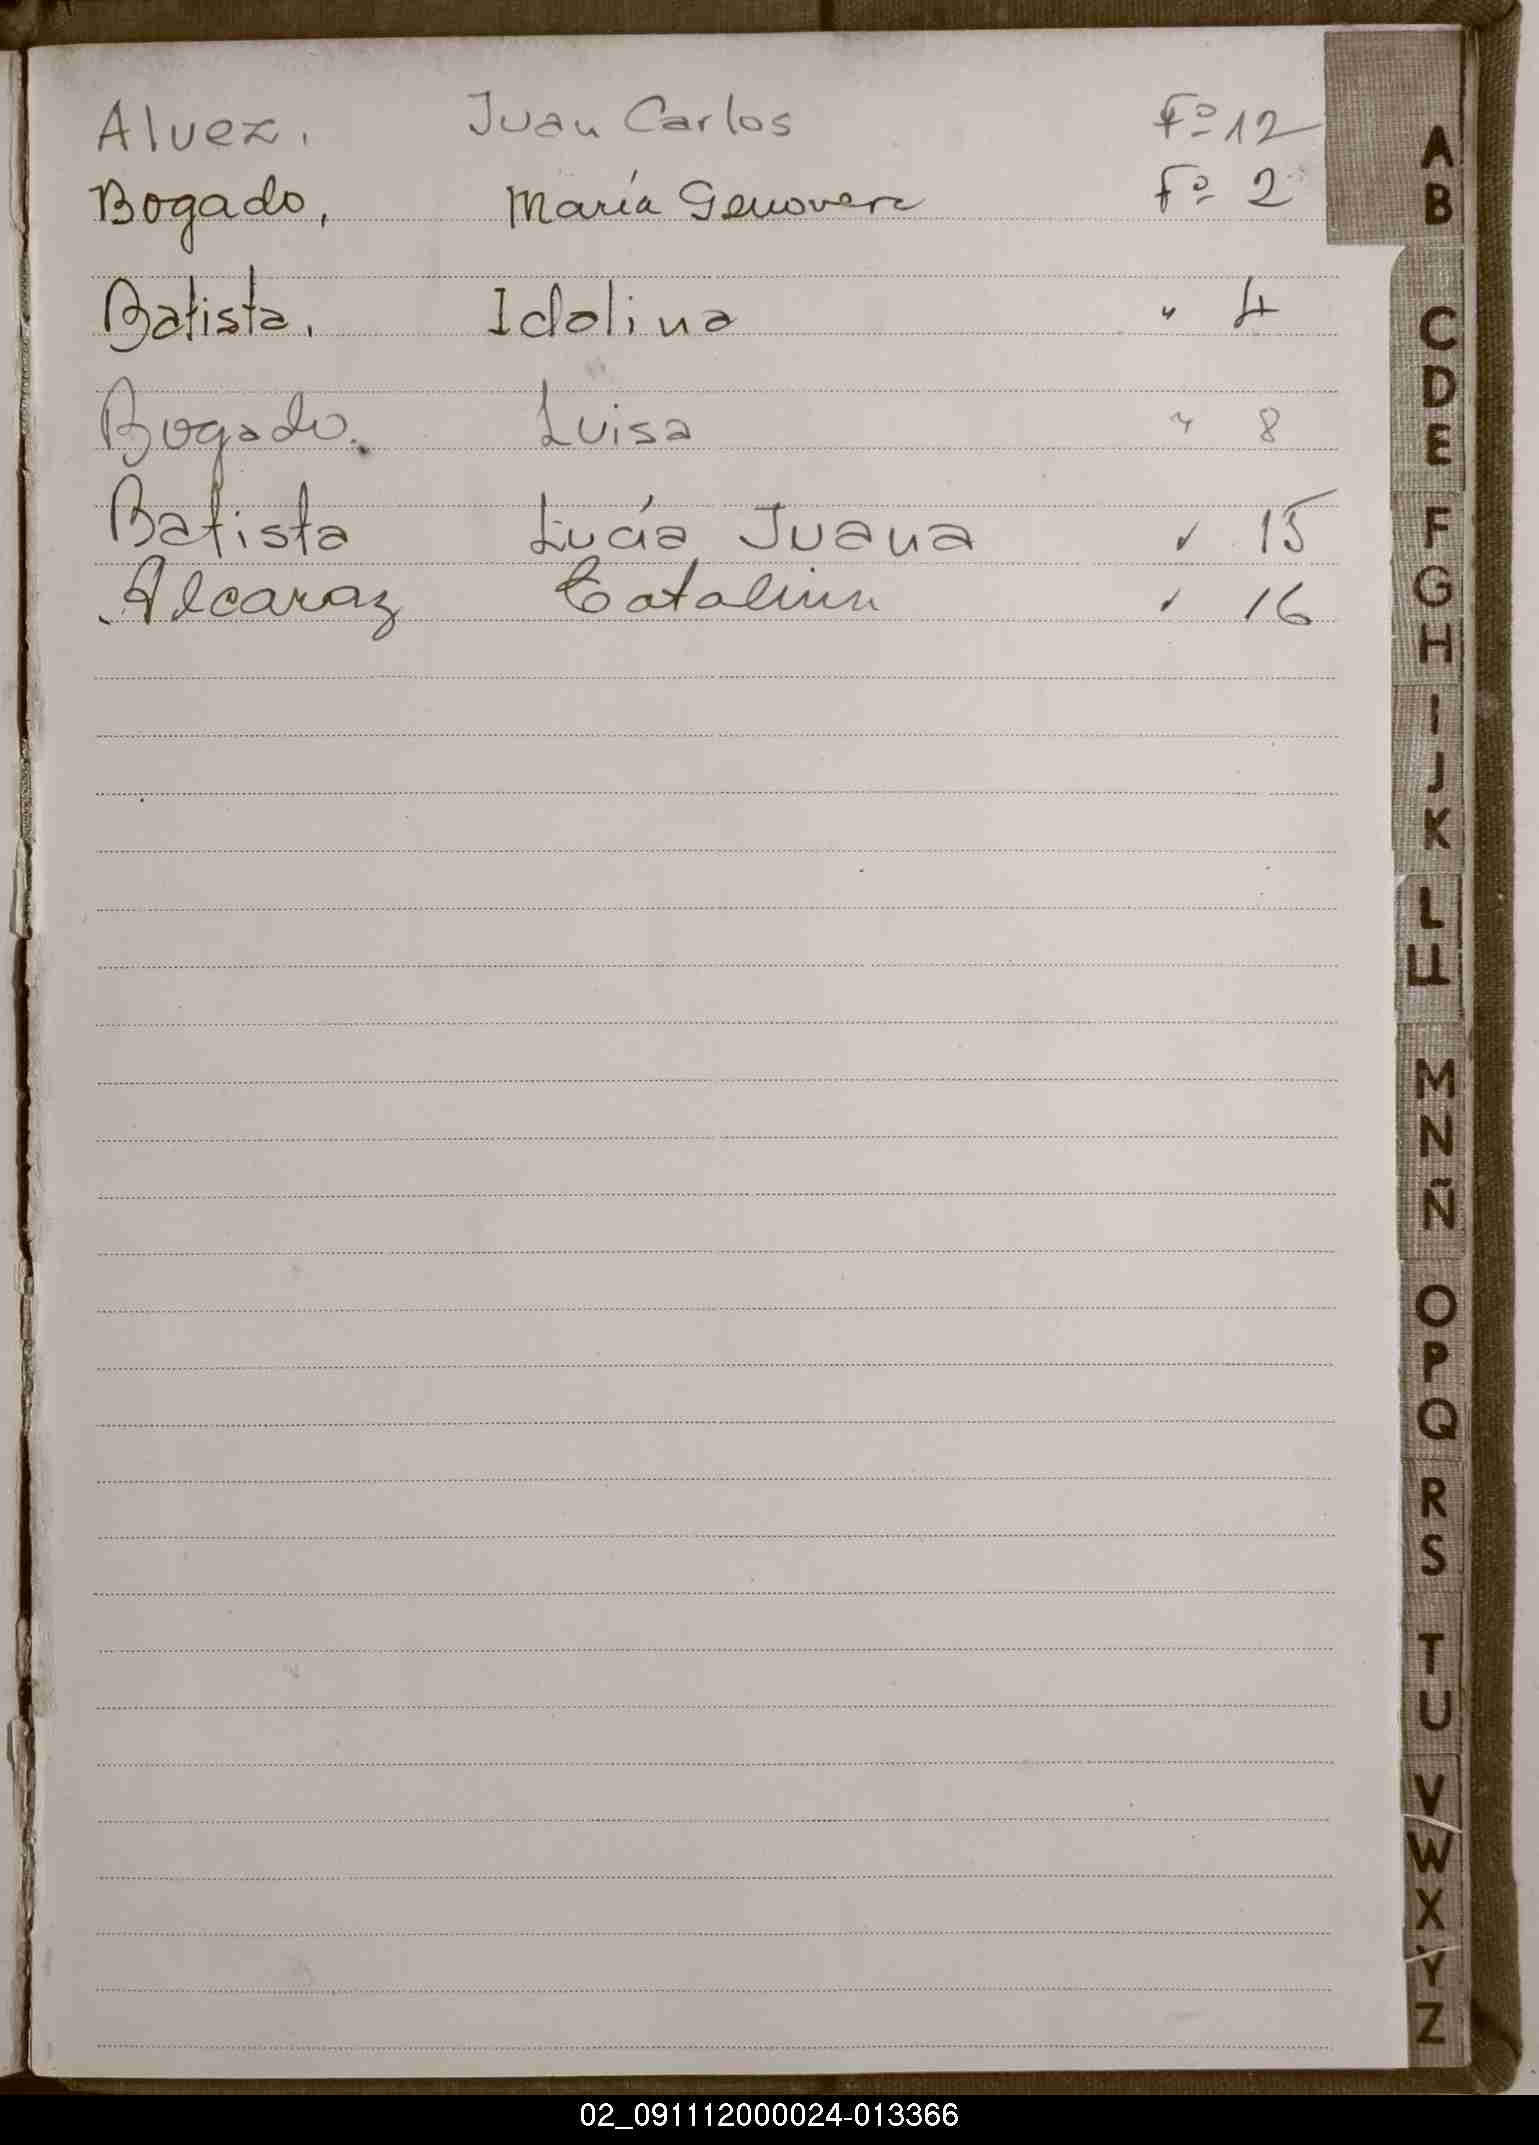 Alvez. Juan Carlos Fº 12
Bogado, María Genovera Fº 2
Batista. Idolina " 4
Bogado. Luisa " 8
Batista Lucía Juana " 15
Alcaraz Catalina " 16
A
B
C
D
E
F
G
H
I
J
K
L
LL
M
N
Ñ
O
P
Q
R
S
T
U
V
W
X
Y
Z
02_091112000024-013366